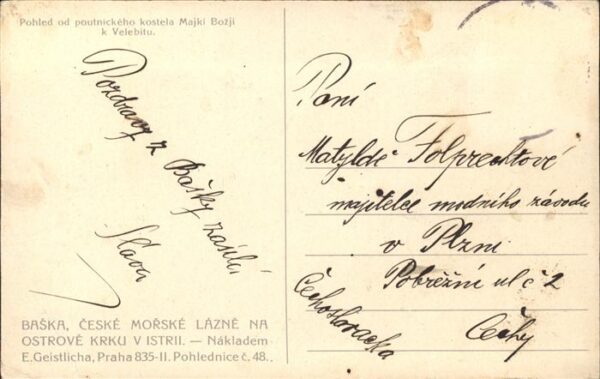 Pohled od poutnického kostela Majki Božji
k Velebitu.
Pozdravy z
Bašky zasílá
Slávа
BAŠKA, ČESKÉ MOŘSKÉ LÁZNĚ NA
OSTROVĚ KRKU V ISTRII. — Nákladem
E. Geistlicha, Praha 835-II. Pohlednice č. 48.
Paní
Matyldě Folprechtové
majitelce modního závodu
v Plzni
Pobřežní ul č 2
Čechy
Čechoslovacka